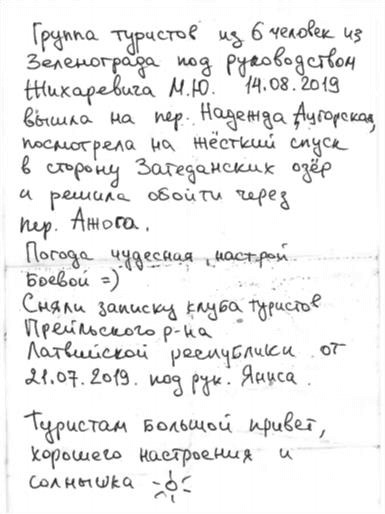 Группа туристов из 6 человек из
Зеленограда под руководством
Жихаревича М.Ю. 14.08.2019
вышла на пер. Надежда, Аугорская,
посмотрела на жёсткий спуск
в сторону Загеданских озёр
и решила обойти через
пер. Ажога.
Погода чудесная, настрой
Боевой =)
Сняли записку клуба туристов
Прейльского р-на
Латвийской республики от
21.07.2019. под рук. Яниса.
Туристам большой привет,
хорошего настроения и
солнышка